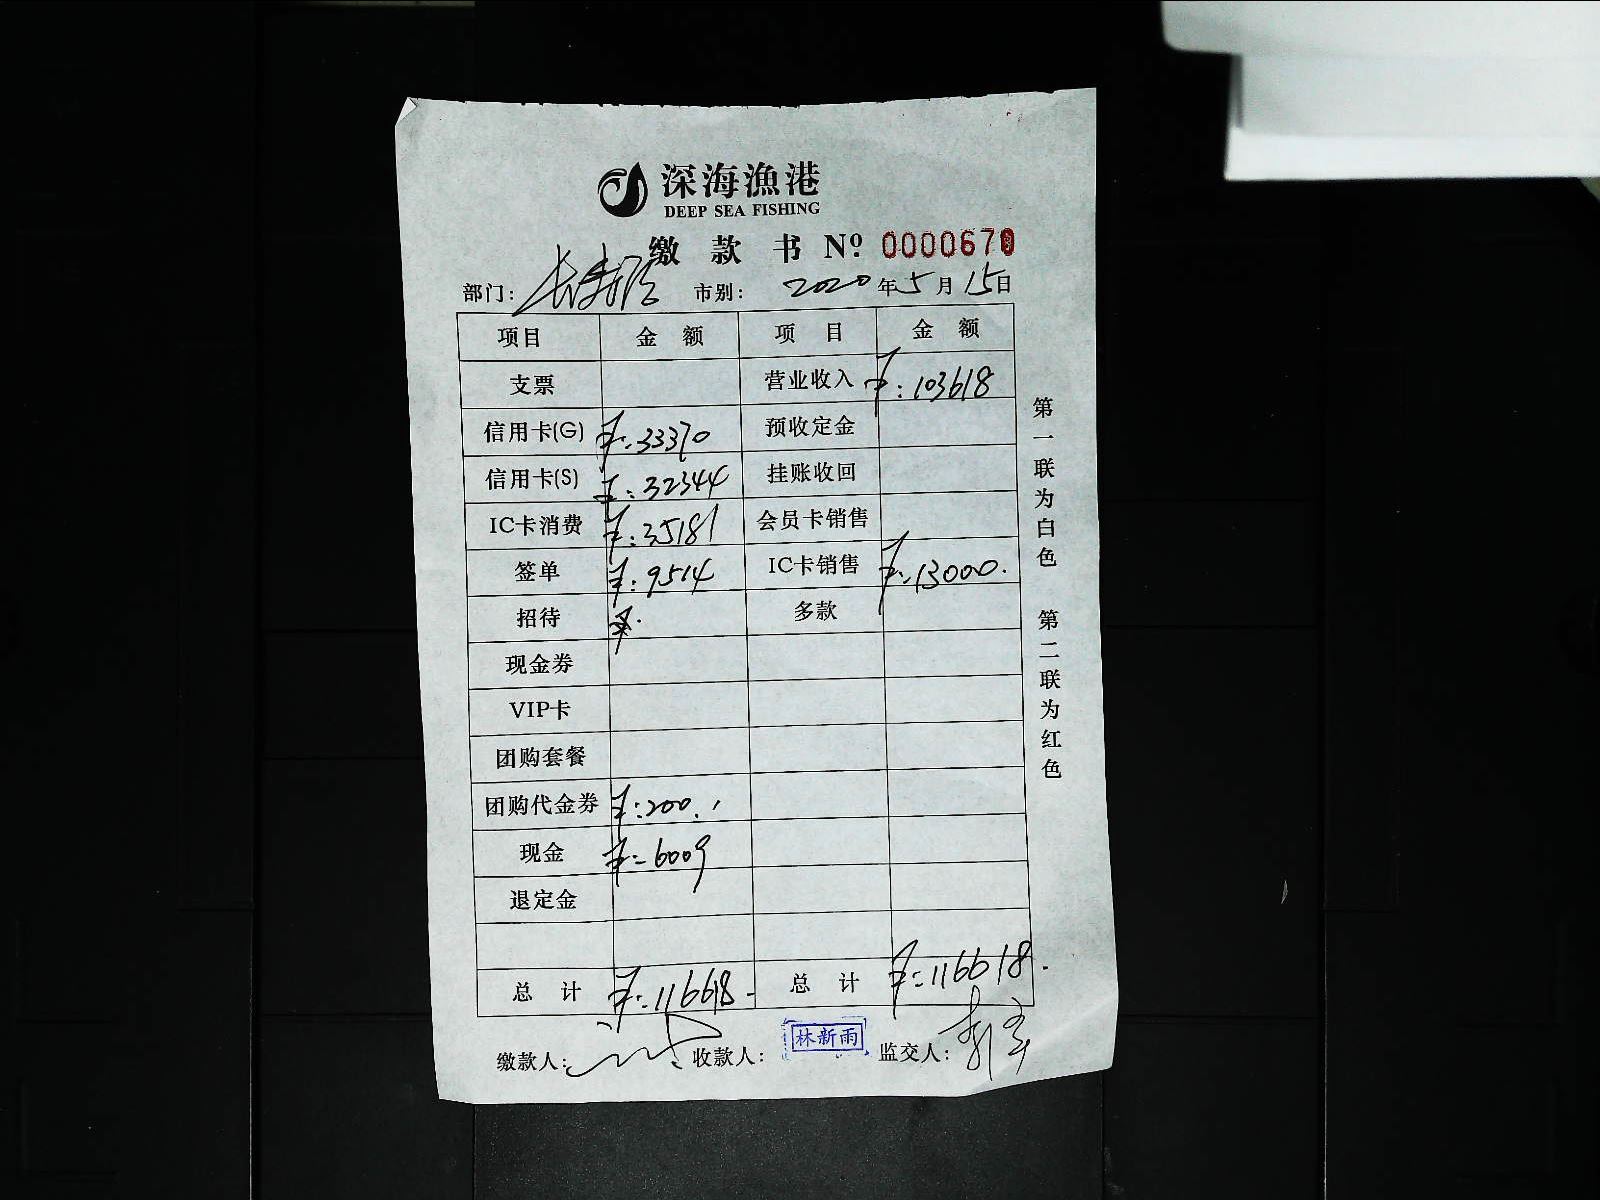 深海漁港
DEEP SEA FISHING
缴款书 Nº 0000670
部门: 市别: 2020年5月15日
项目 金额 项目 金额
支票 营业收入 ¥:103618
信用卡(G) ¥:33370 预收定金
信用卡(S) ¥:32344 挂账收回
IC卡消费 ¥:35181 会员卡销售
签单 ¥:9514 IC卡销售 ¥:13000.
招待 多款
现金券
VIP卡
团购套餐
团购代金券 ¥:200.
现金 ¥:6009
退定金
总计 ¥:116618- 总计 ¥:116618.
缴款人: 收款人: 林新雨 监交人:
第一联为白色 第二联为红色